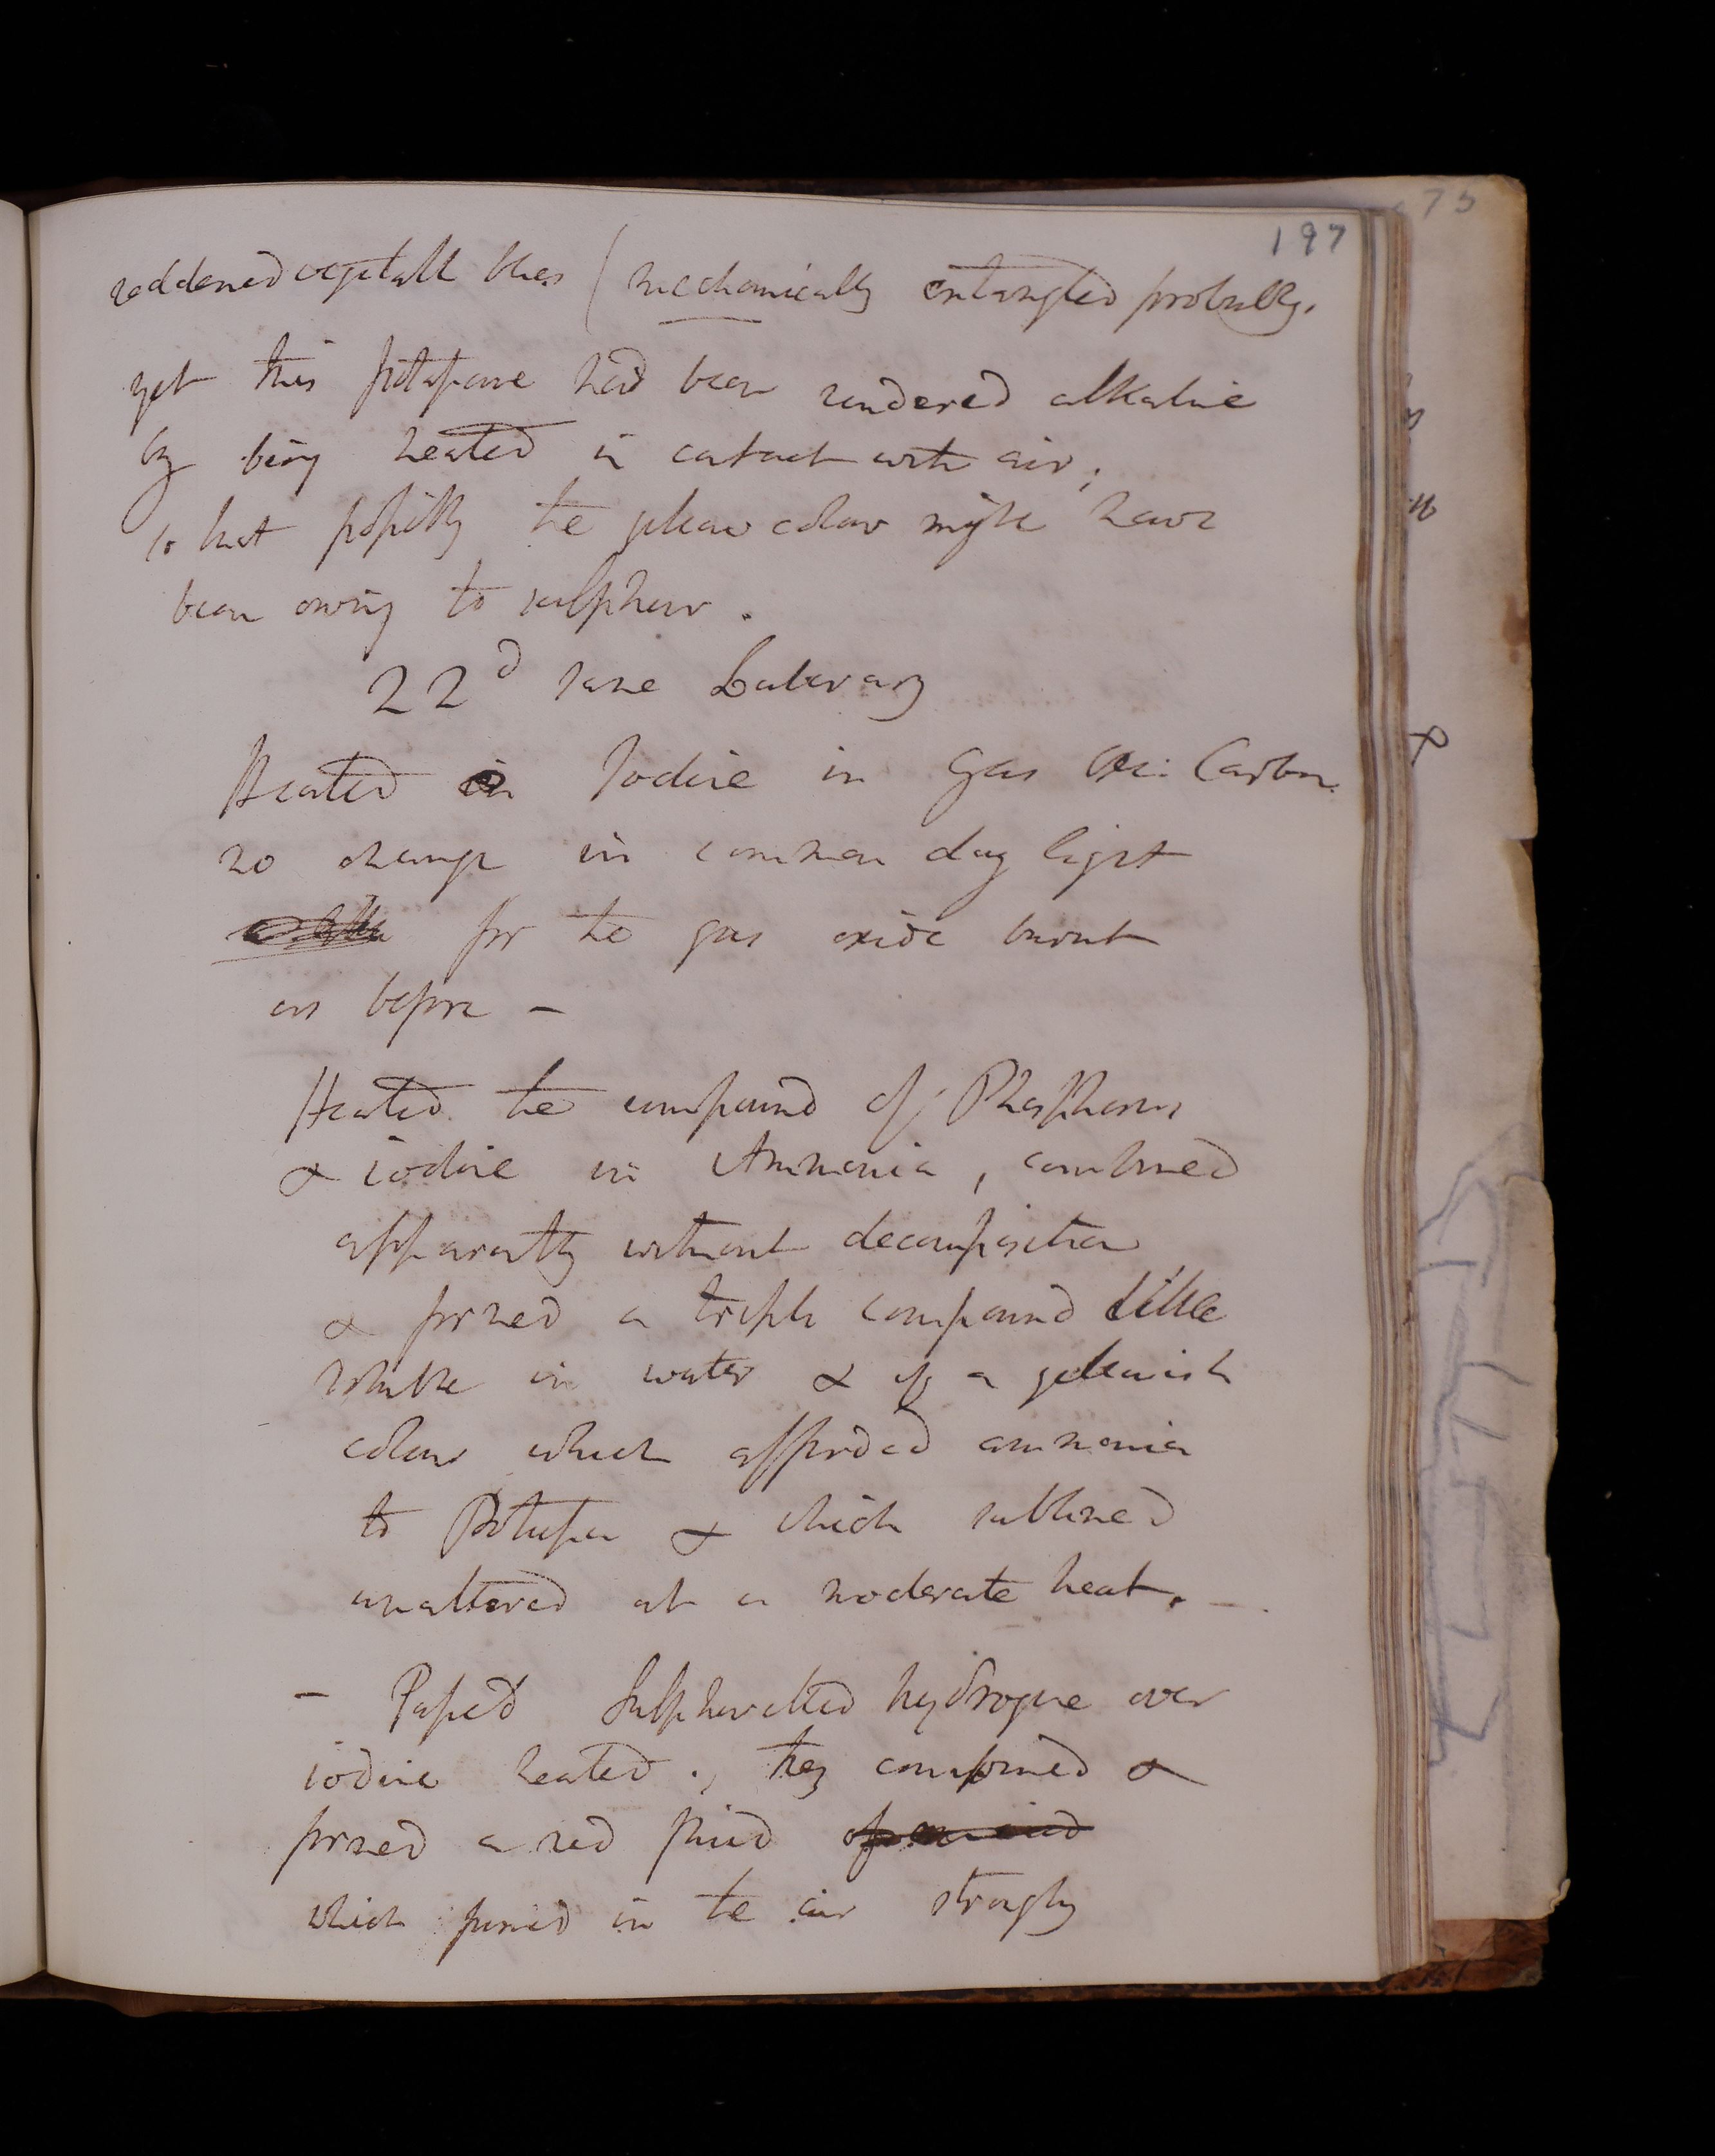 197
reddened vegetable blues (mechanically entangled probably.
yet this potassane had been rendered alkaline
by being heated in contact with air;
so that possibly the yellow colour might have
been owing to sulphur.
22d same Laboratory
Heated in Iodine in Gas Oxi: Carbon.
no change in common day light
for the gas oxide burnt
as before -
Heated the compound of Phosphorus
& iodine in Ammonia, combined
apparently without decomposition
& formed a triple compound little
soluble in water & of a yellowish
colour which afforded ammonia
to Potassa & which sublimed
unaltered at a moderate heat. -
- Passed Sulphuretted hydrogene over
iodine heated; they combined &
formed a red fluid
which fumed in the air strongly